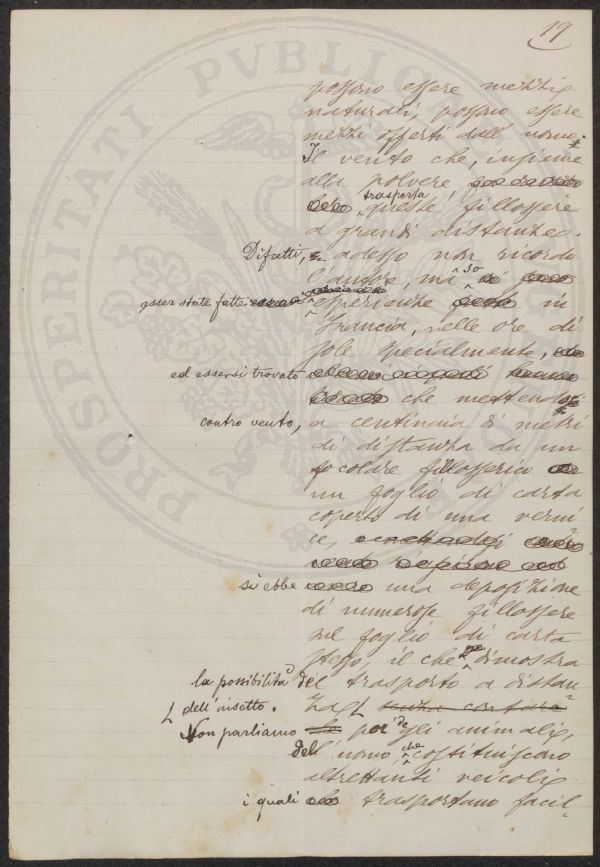 19
possono essere mezzi
naturali, possono essere
mezzi offerti dall' uomo.
Il vento che, insieme
alla polvere,
trasporta queste fillossere
a grandi distanze.
Difatti, adesso non ricordo
l'autore, ma so
esser state fatte esperienze in
Francia, nelle ore di
sole specialmente,
ed essersi trovato
che mettendosi
contro vento, a centinaia di metri
di distanza da un
focolare fillosserico
un foglio di carta
coperto di una verni
ce,
si ebbe una deposizione
di numerose fillossere
sul foglio di carta
stesso, il che dimostra
la possibilità del trasporto a distan
za dell' insetto. senza contare
Non parliamo che poi degli animali,
dell' uomo, che costituiscono
altrettanti veicoli
i quali trasportano facil-
PROSPERITATI PVBLICAE